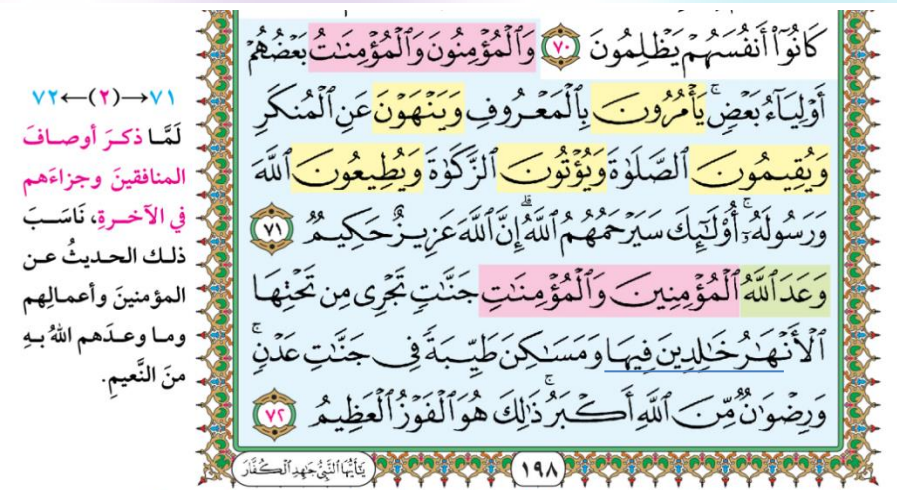 كَانُوٓا۟ أَنفُسَهُمْ يَظْلِمُونَ ٧٠ وَٱلْمُؤْمِنُونَ وَٱلْمُؤْمِنَٰتُ بَعْضُهُمْ
أَوْلِيَآءُ بَعْضٍۚ يَأْمُرُونَ بِٱلْمَعْرُوفِ وَيَنْهَوْنَ عَنِ ٱلْمُنكَرِ
وَيُقِيمُونَ ٱلصَّلَوٰةَ وَيُؤْتُونَ ٱلزَّكَوٰةَ وَيُطِيعُونَ ٱللَّهَ
وَرَسُولَهُۥٓۚ أُو۟لَٰٓئِكَ سَيَرْحَمُهُمُ ٱللَّهُۗ إِنَّ ٱللَّهَ عَزِيزٌ حَكِيمٌ ٧١
وَعَدَ ٱللَّهُ ٱلْمُؤْمِنِينَ وَٱلْمُؤْمِنَٰتِ جَنَّٰتٍ تَجْرِى مِن تَحْتِهَا
ٱلْأَنْهَٰرُ خَٰلِدِينَ فِيهَا وَمَسَٰكِنَ طَيِّبَةً فِى جَنَّٰتِ عَدْنٍۚ
وَرِضْوَٰنٌ مِّنَ ٱللَّهِ أَكْبَرُۚ ذَٰلِكَ هُوَ ٱلْفَوْزُ ٱلْعَظِيمُ ٧٢
١٩٨
يَٰٓأَيُّهَا ٱلنَّبِىُّ جَٰهِدِ ٱلْكُفَّارَ
٧١→(٢)←٧٢
لَمَّا ذكرَ أوصافَ
المنافقينَ وجزاءَهم
في الآخرةِ، نَاسَبَ
ذلك الحديثُ عن
المؤمنينَ وأعمالِهم
وما وعدَهم اللهُ بهِ
منَ النَّعيمِ.